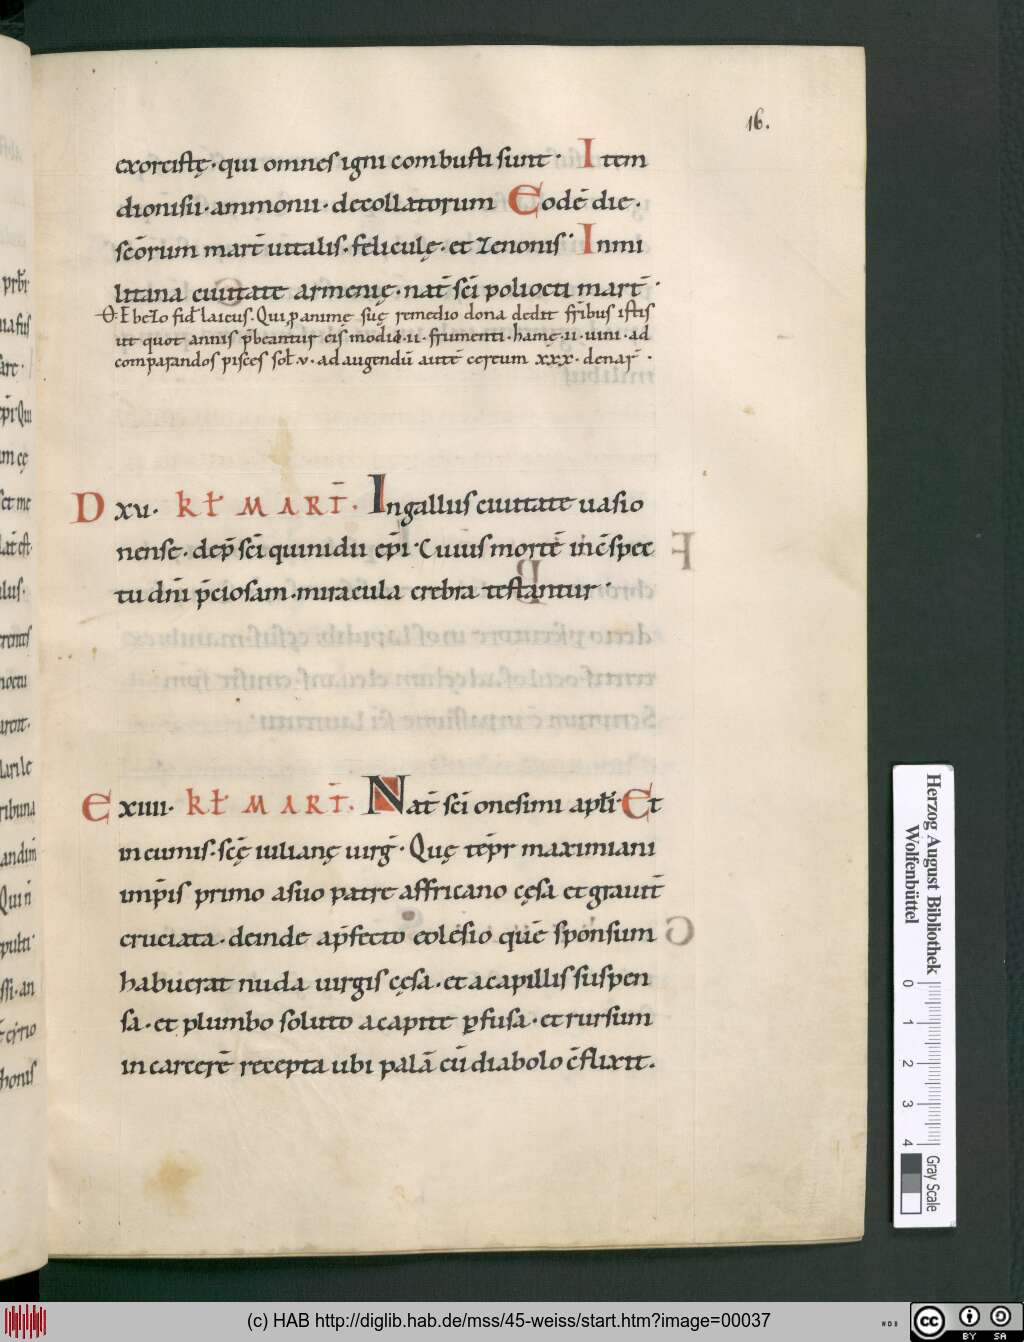 16.
exorcistę· qui omnes igni combusti sunt· Item
dionisii· ammonii· decollatorum Eodē die·
scōrum mart̄ uitalis· feliculę· et zenonis· Inmi
litana ciuitate armenię· nat̄ sc̄i poliocti mart̄·
Ꝋ· Ebero fidł laicus. Qui ꝓ animę suę remedio dona dedit fr̄ibus istis
ut quot annis p̄beantur eis modii· ii· frumenti· hamę· ii· uini· ad
comparandos pisces soł· v· ad augendū autē certum xxx· denar̄·
D xv· kł MART̄· Ingallus ciuitate uasio
nense· dep̄ sc̄i quinidii ep̄i· Cuius mortē inc̄spec
tu dn̄i p̄ciosam· miracula crebra testantur·
E xiiii· kł MART̄· Nat̄ sc̄i onesimi apłi· Et
in cumis· sc̄ę iulianę uirḡ· Quę tēpr maximiani
imp̄is primo asuo patre affricano cęsa et grauit̄
cruciata· deinde ap̄fecto eolesio quē sponsum
habuerat nuda uirgis cęsa· et acapillis suspen
sa· et plumbo soluto acapite ꝑfusa· et rursum
in carcerē recepta ubi palā cū diabolo c̄flixit.
Herzog August Bibliothek
Wolfenbüttel
0 1 2 3 4
Gray Scale
(c) HAB http://diglib.hab.de/mss/45-weiss/start.htm?image=00037
WDB
CC BY SA